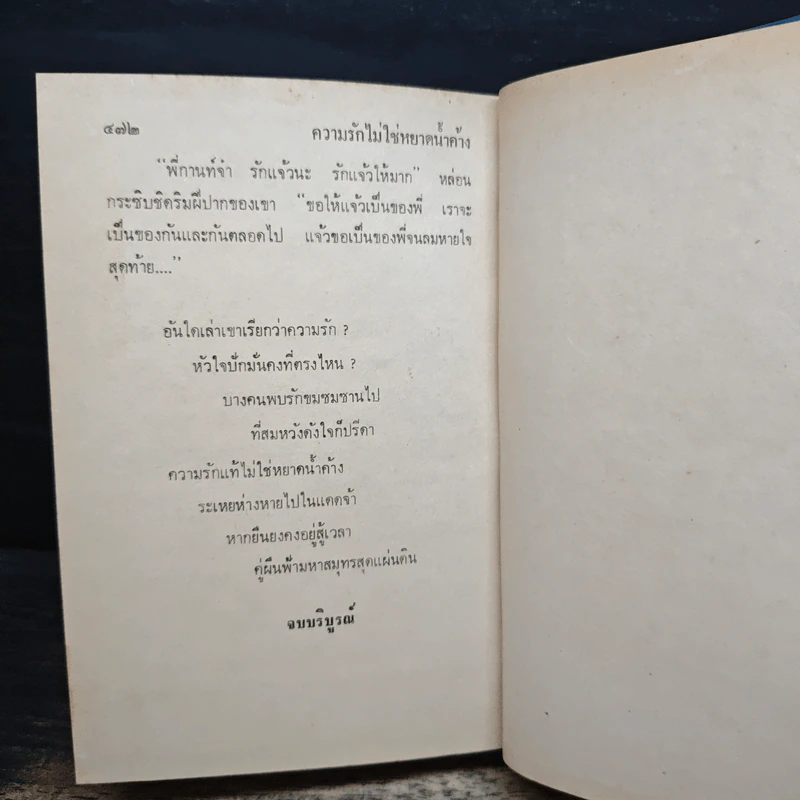 ๔๗๒ ความรักไม่ใช่หยาดน้ำค้าง
“พี่กานท์จ๋า รักแจ้วนะ รักแจ้วให้มาก” หล่อน
กระซิบชิดริมฝีปากของเขา “ขอให้แจ้วเป็นของพี่ เราจะ
เป็นของกันและกันตลอดไป แจ้วขอเป็นของพี่จนลมหายใจ
สุดท้าย....”
อันใดเล่าเขาเรียกว่าความรัก ?
หัวใจปักมั่นคงที่ตรงไหน ?
บางคนพบรักขมซมซานไป
ที่สมหวังดังใจก็ปรีดา
ความรักแท้ไม่ใช่หยาดน้ำค้าง
ระเหยห่างหายไปในแดดจ้า
หากยืนยงคงอยู่สู้เวลา
คู่ผืนฟ้ามหาสมุทรสุดแผ่นดิน
จบบริบูรณ์